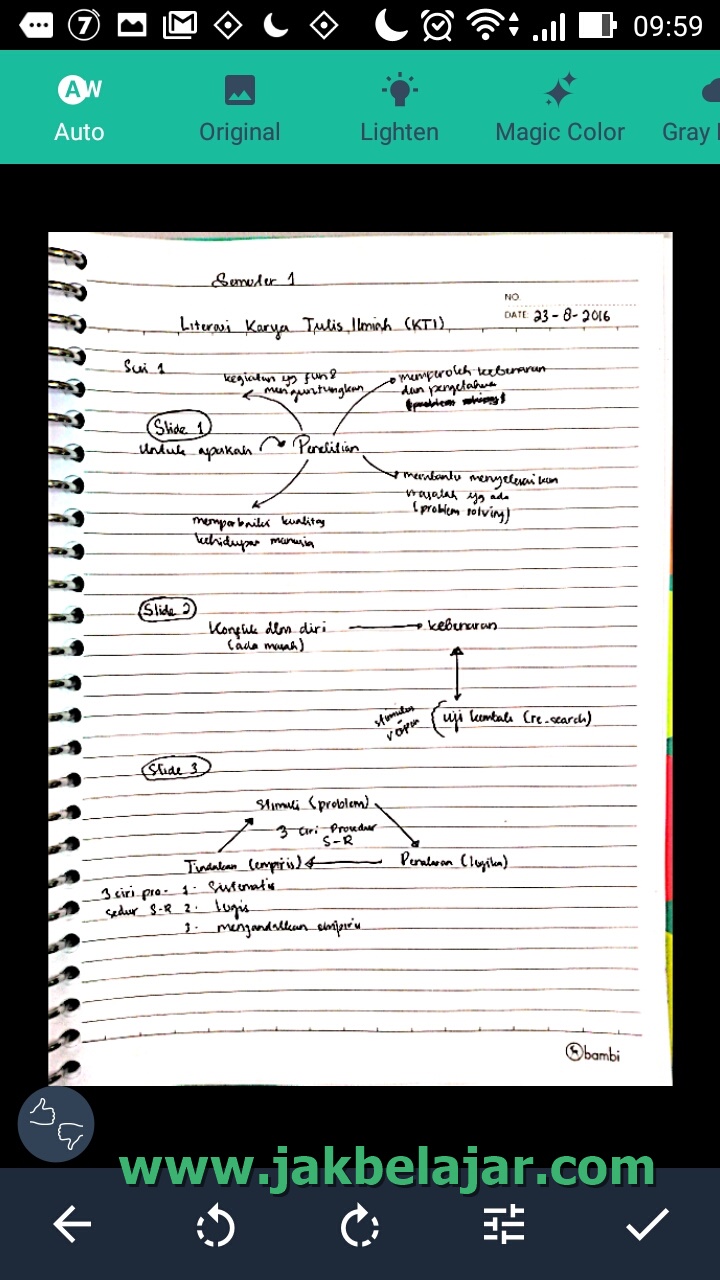 7
09:59
AW
Auto
Original
Lighten
Magic Color
Gray
Semester 1
NO.
DATE: 23-8-2016
Literasi Karya Tulis Ilmiah (KTI)
Sesi 1
kegiatan yg
menguntungkan
memperoleh kebenaran
dan
Slide 1
Untuk apakah Penelitian
membantu menyelesaikan
masalah yg ada
(problem solving)
memperbaiki kualitas
kehidupan manusia
Slide 2
Konflik dlm diri
kebenaran
(ada
uji kembali (re-search)
Slide 3
Stimuli (problem)
3 ciri Prosedur
S-R
Tindakan (empiris)
Penalaran (logika)
3 ciri pro-
sedur S-R
1. Sistematis
2. Logis
3. mengandalkan empiris
bambi
www.jakbelajar.com